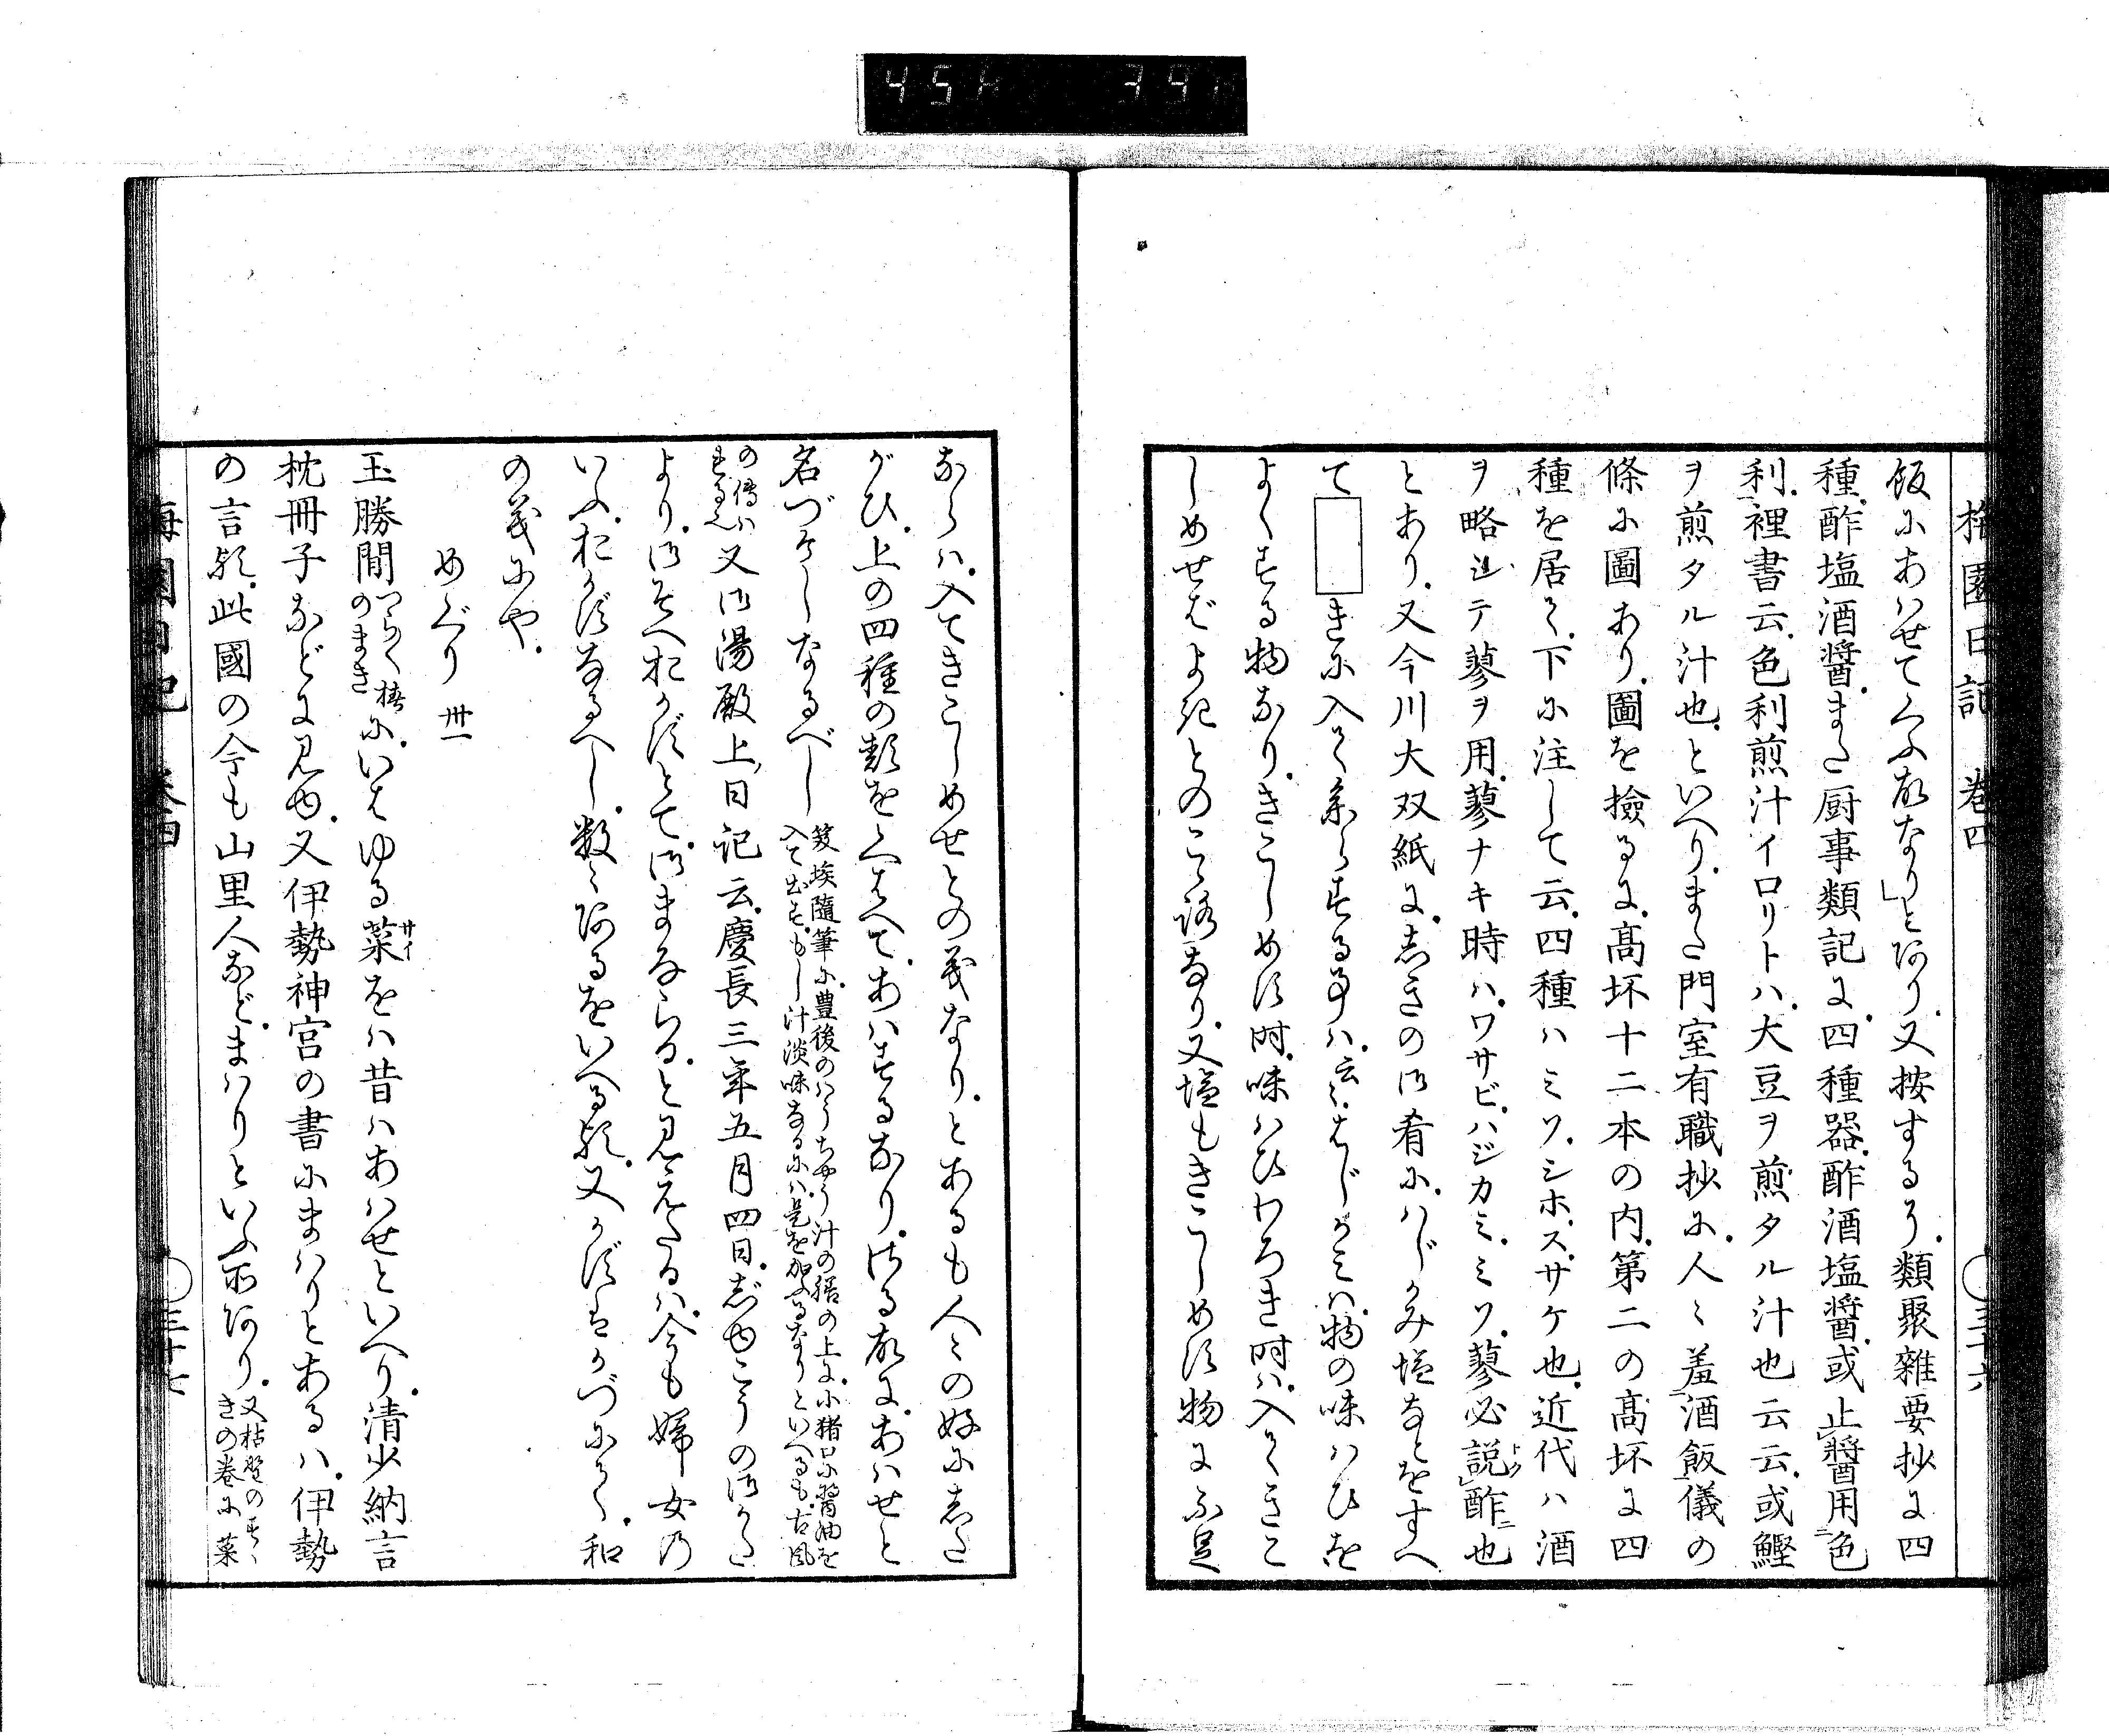 梅園日記 卷四 ○三十六
飯にあはせてくふ故なり」とあり。又按するに。類聚雜要抄に四
種。酢塩酒醤。また厨事類記に。四種器。酢酒塩醤。或止醤用色
利。裡書云。色利煎汁イロリトハ。大豆ヲ煎タル汁也云云。或鰹
ヲ煎タル汁也。といへり。また門室有職抄に。人〻羞酒飯儀の
條に圖あり。圖を撿るに。高坏十二本の内。第二の高坏に四
種を居て。下に注して云。四種ハミソ。シホ。ス。サケ也。近代ハ酒
ヲ略シテ蓼ヲ用。蓼ナキ時ハ。ワサビ。ハジカミ。ミソ。蓼必説酢也
とあり。又今川大双紙に。しきの御肴に。はじかみ塩なとをすへ
て きに入て參らする事ハ。云〻。はじかみハ。物の味はひを
よくする物なり。きこしめす時。味はひわろき時ハ。入てきこ
しめせばよきとのこゝろなり。又塩もきこしめす物に不足
ならハ。入てきこしめせとの義なり。とあるも人〻の好にした
がひ。上の四種の類をくはへて。あはするなり。さる故に。あはせと
名づけしなるべし 笈埃隨筆に。豊後のはうちやう汁の膳の上に。小猪口に醤油を
入て出す。もし汁淡味なるにハ。是を加ふるなりといへるも。古風
の傳ハれるなり 又御湯殿上日記云。慶長三年五月四日。しゆこうの御かた
より。御そへおかずとて。御まゐらる。と見えたるハ。今も婦女の
いふ。おかずなるべし。數〻あるをいへる歟。又かずはかづにて。和
の義にや。
めぐり 卅一
玉勝間 つらつら椿のまき に。いはゆる菜をハ昔ハあはせといへり。清少納言
枕冊子などに見ゆ。又伊勢神宮の書にまはりとあるハ。伊勢
の言歟。此國の今も山里人など。まはりといふ所あり。又枯野のすゝ
きの卷に 菜
梅園日記 卷四 ○三十七